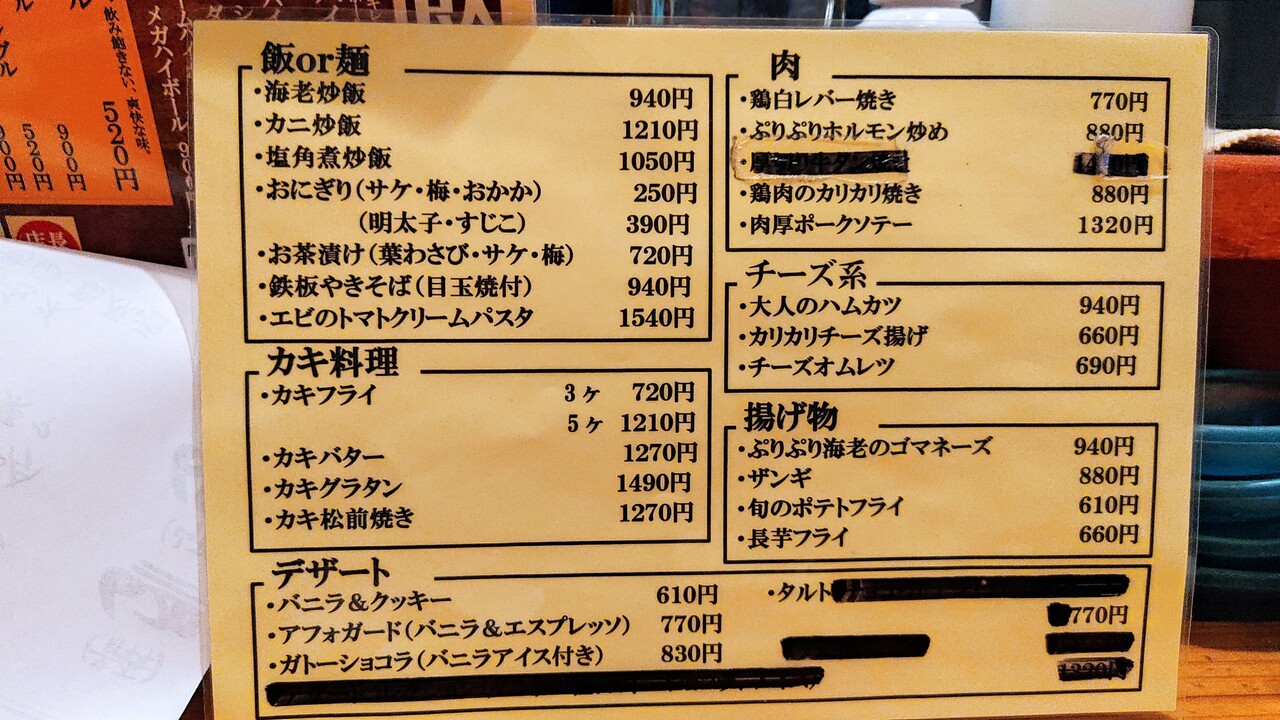 飲み飽きない、爽快な味。
520円
メガハイボール
900円
520円
900円
店長
飯or麺
・海老炒飯 940円
・カニ炒飯 1210円
・塩角煮炒飯 1050円
・おにぎり(サケ・梅・おかか) 250円
(明太子・すじこ) 390円
・お茶漬け(葉わさび・サケ・梅) 720円
・鉄板やきそば(目玉焼付) 940円
・エビのトマトクリームパスタ 1540円
カキ料理
・カキフライ 3ヶ 720円
5ヶ 1210円
・カキバター 1270円
・カキグラタン 1490円
・カキ松前焼き 1270円
肉
・鶏白レバー焼き 770円
・ぷりぷりホルモン炒め 880円
・鶏肉のカリカリ焼き 880円
・肉厚ポークソテー 1320円
チーズ系
・大人のハムカツ 940円
・カリカリチーズ揚げ 660円
・チーズオムレツ 690円
揚げ物
・ぷりぷり海老のゴマネーズ 940円
・ザンギ 880円
・旬のポテトフライ 610円
・長芋フライ 660円
デザート
・バニラ&クッキー 610円
・アフォガード(バニラ&エスプレッソ) 770円
・ガトーショコラ(バニラアイス付き) 830円
・タルト
770円